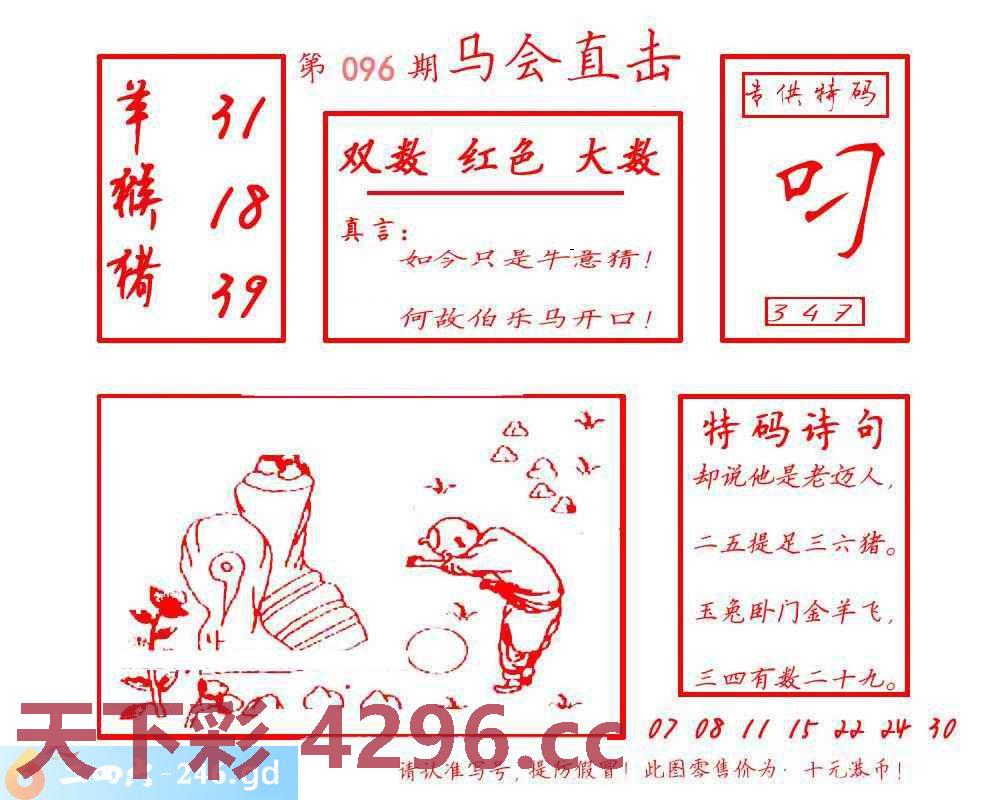 第 096 期 马会直击
羊 31
猴 18
猪 39
双数 红色 大数
真言：
如今只是牛意猜！
何故伯乐马开口！
专供特码
叼
3 4 7
特码诗句
却说他是老迈人，
二五提足三六猪。
玉兔卧门金羊飞，
三四有数二十九。
07 08 11 15 22 24 30
天下彩 4296.cc
-246.gd
请认准写号，提防假冒！此图零售价为·十元港币！